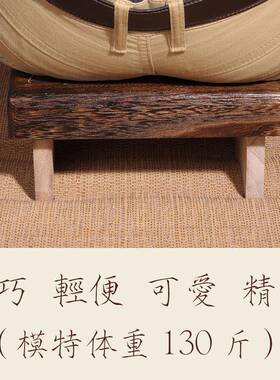 巧 輕便 可愛 精
(模特体重 130 斤)